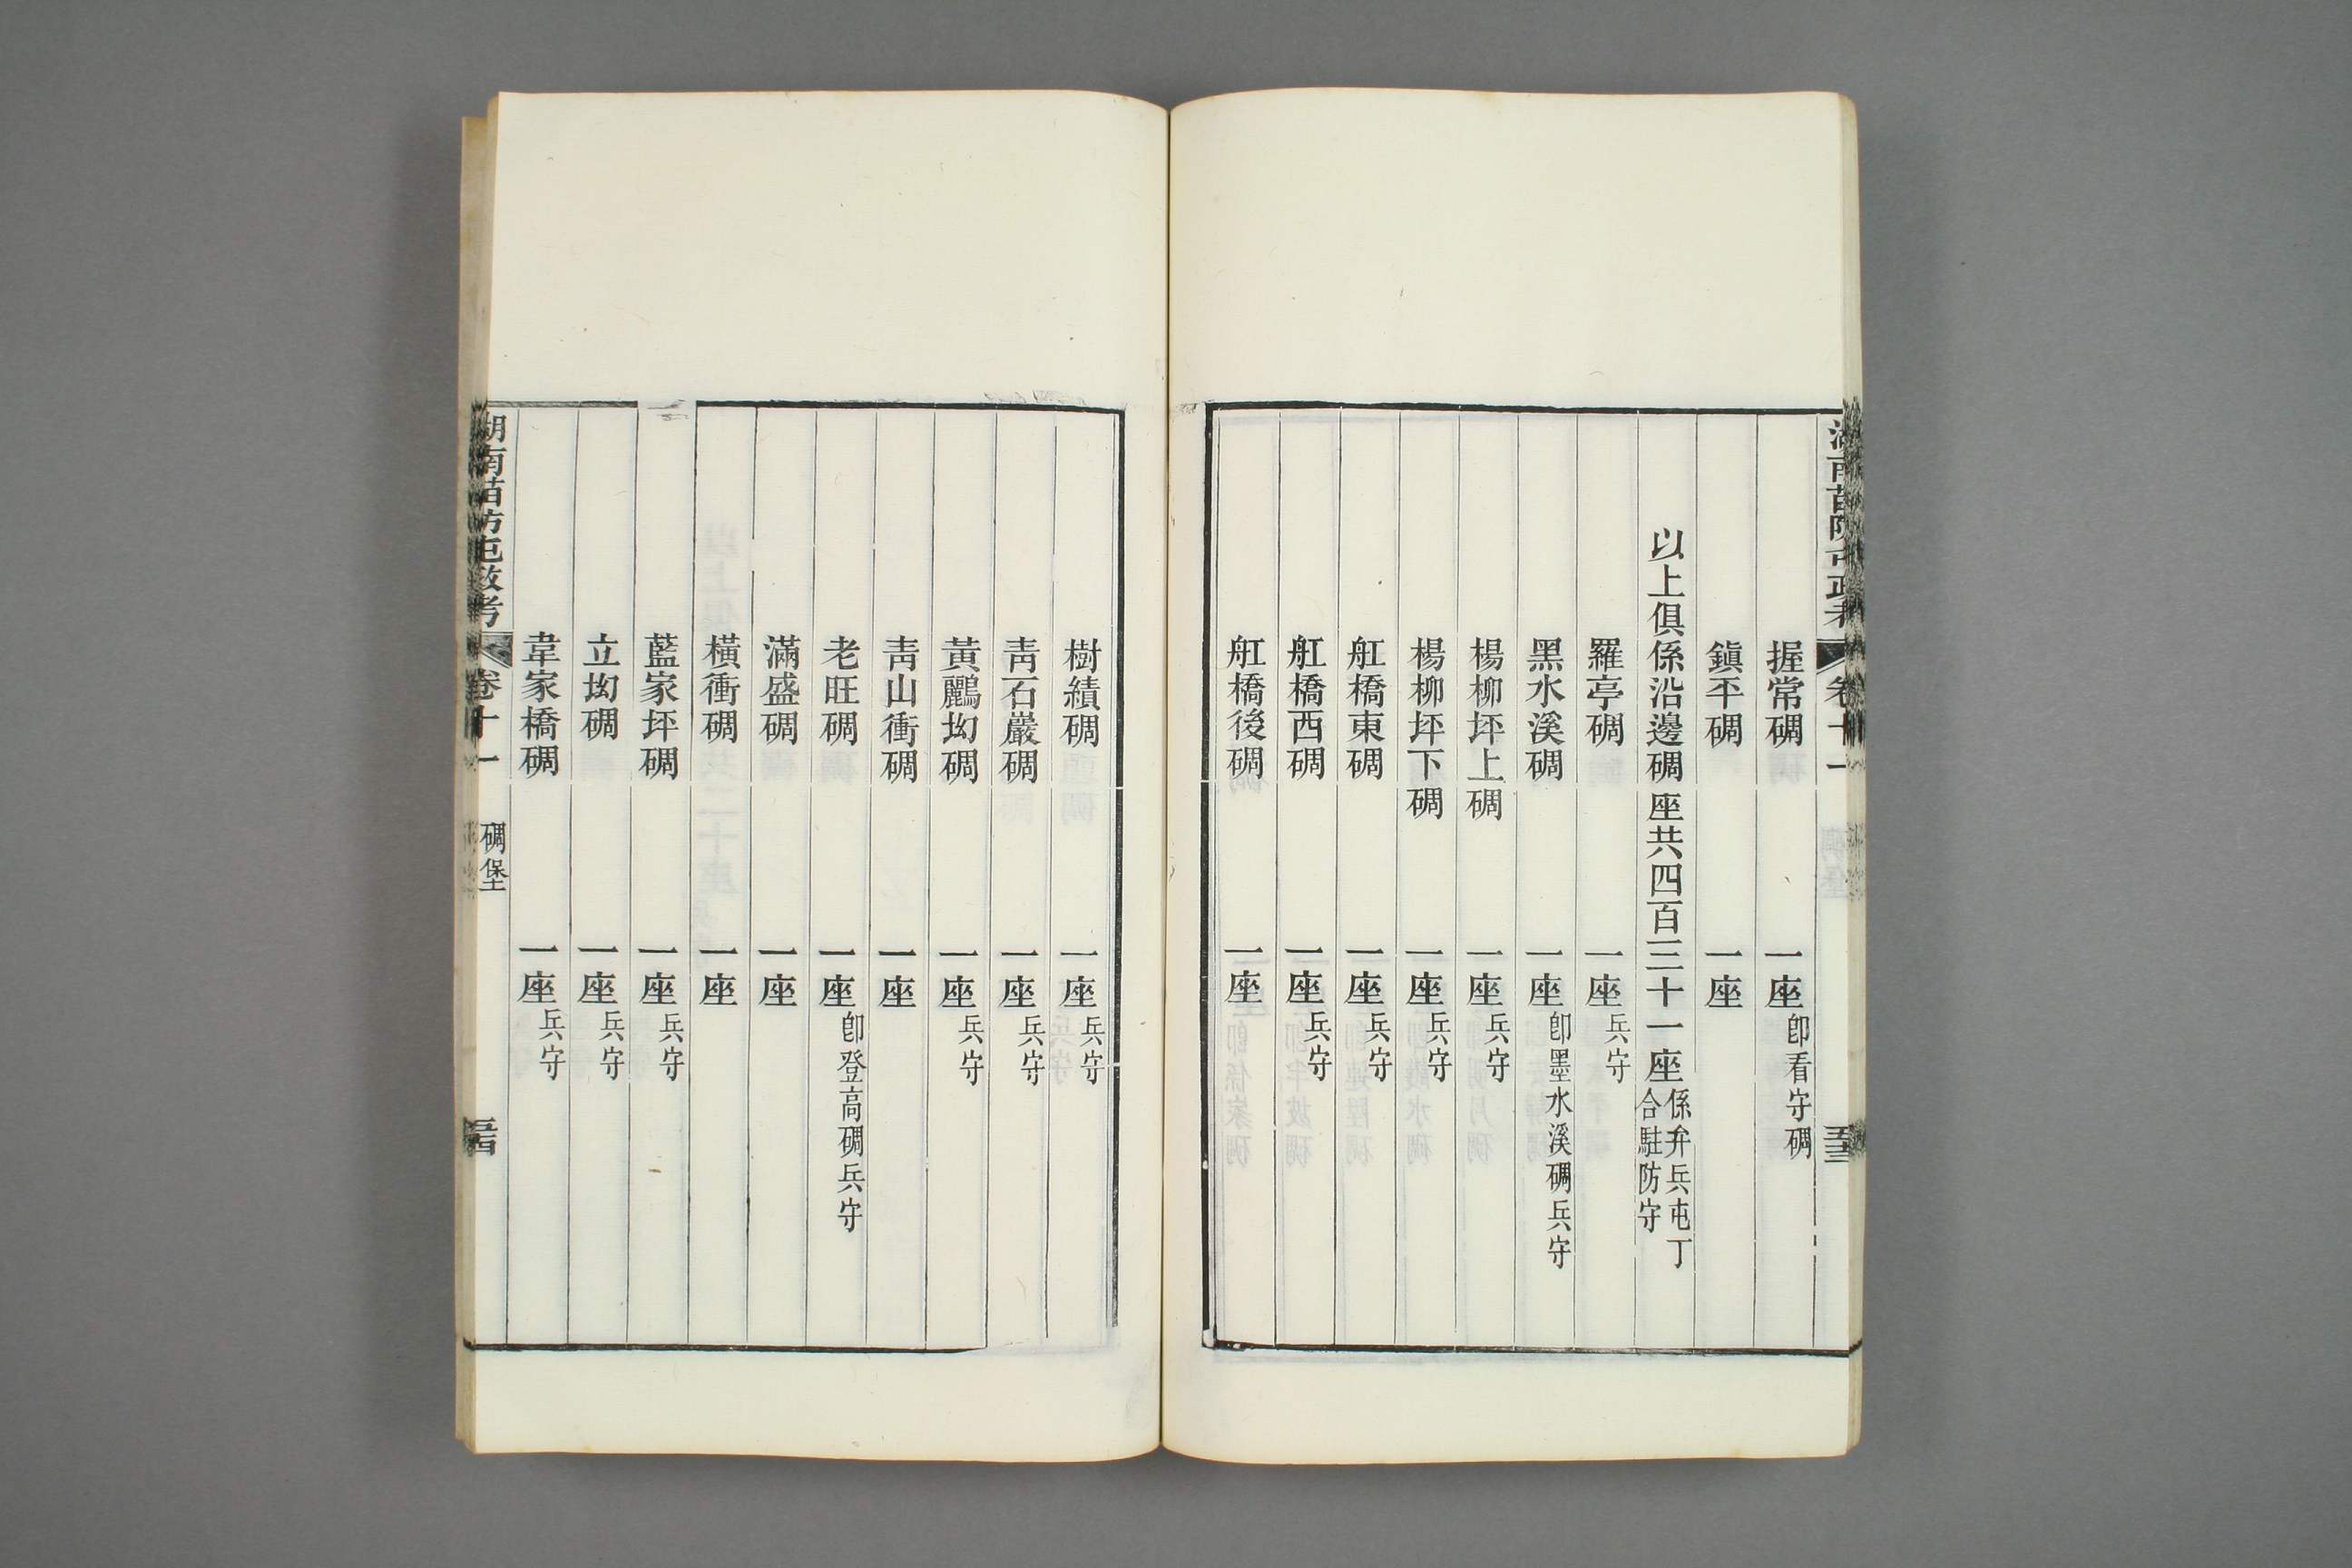 湖南苗防屯政考 卷十一
握常碉 一座 卽看守碉
鎭平碉 一座
以上俱係沿邊碉座共四百三十一座 係弁兵屯丁合駐防守
羅亭碉 一座 兵守
黑水溪碉 一座 卽墨水溪碉兵守
楊柳坪上碉 一座 兵守
楊柳坪下碉 一座 兵守
舡橋東碉 一座 兵守
舡橋西碉 一座 兵守
舡橋後碉 一座
樹績碉 一座 兵守
靑石巖碉 一座 兵守
黃鸝坳碉 一座 兵守
靑山衝碉 一座
老旺碉 一座 卽登高碉兵守
滿盛碉 一座
橫衝碉 一座
藍家坪碉 一座 兵守
立坳碉 一座 兵守
韋家橋碉 一座 兵守
湖南苗防屯政考 卷十一 碉堡 五四